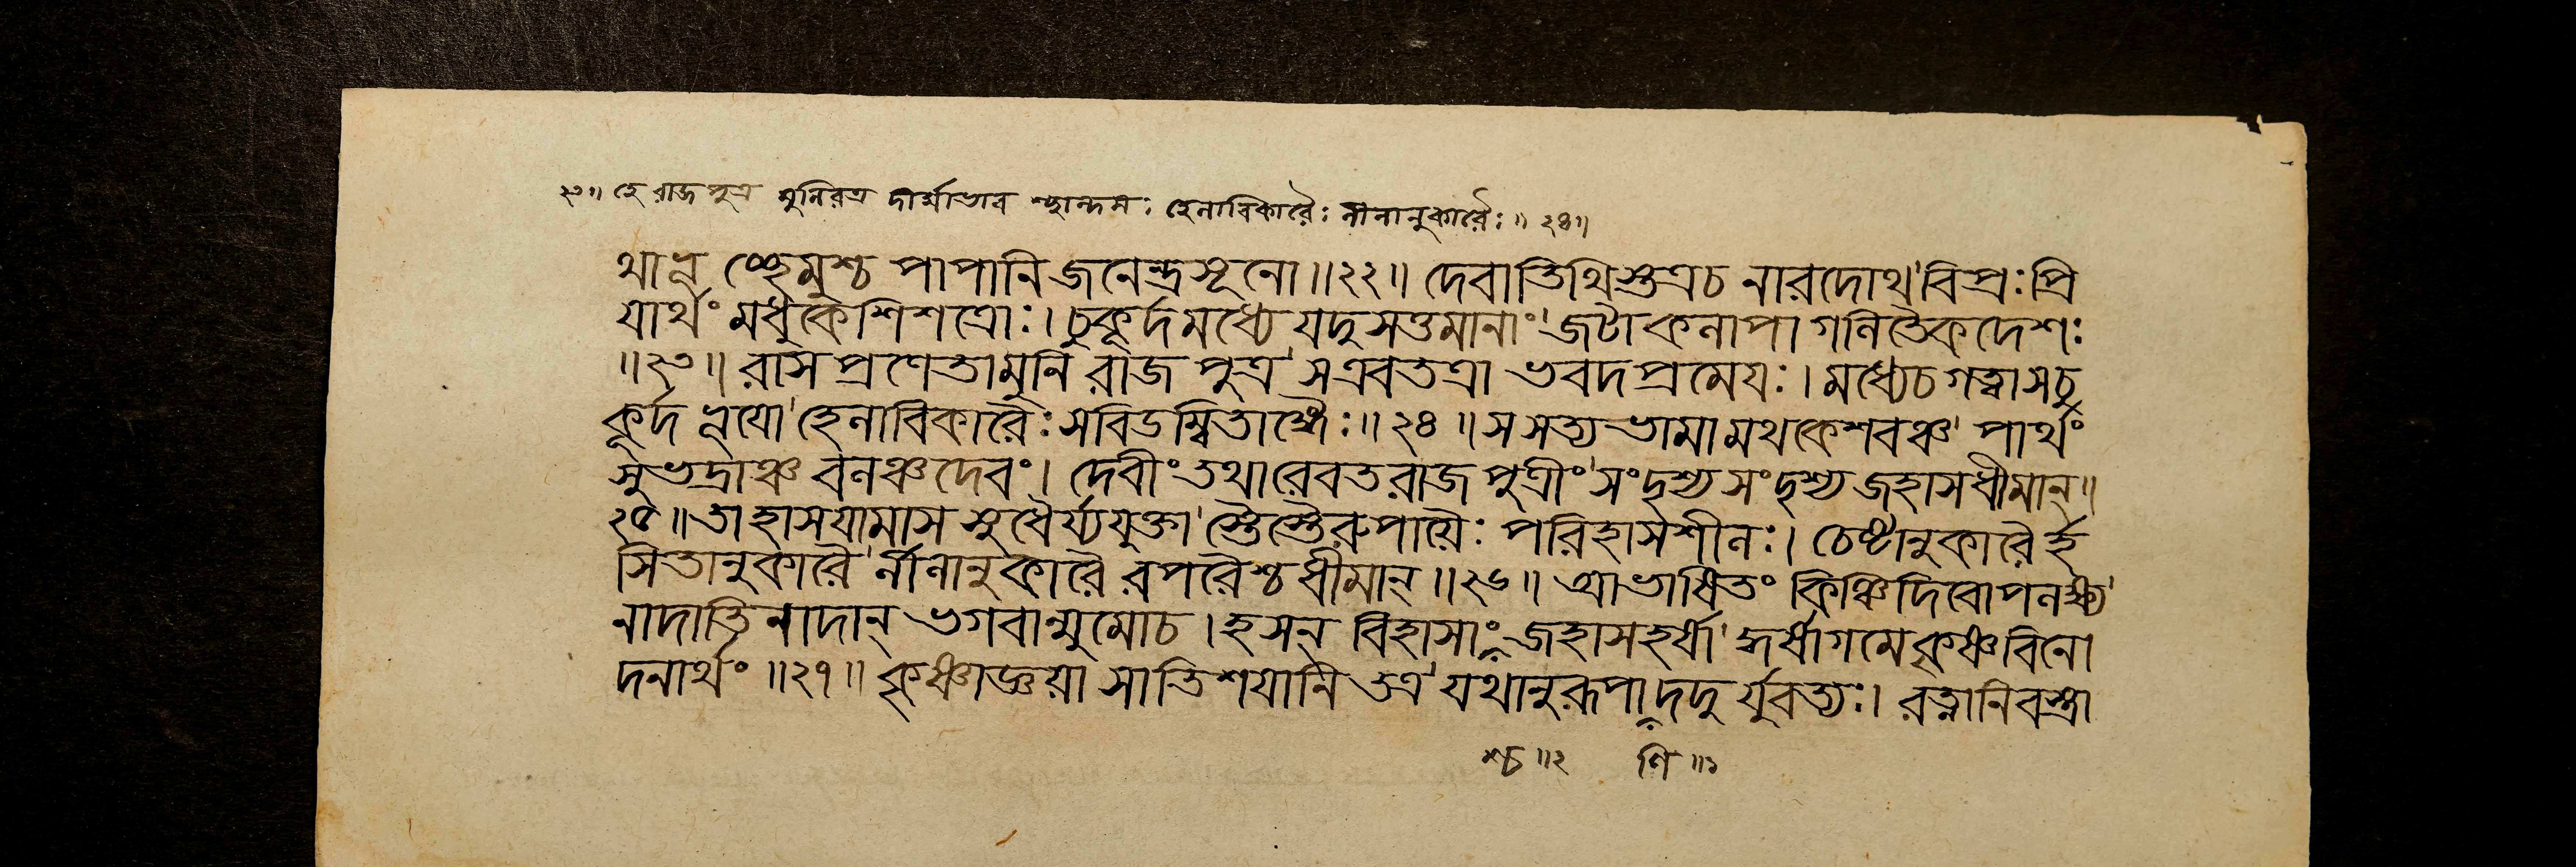 ২৩॥ হে রাজপুত্র মুনিরত্র দার্ষাভাব শ্ছান্দসঃ হেলাবিকারৈঃ লীলানুকারৈঃ॥ ২৪॥
থান্ন চ্ছেমুশ্চ পাপানি জনেন্দ্রসূনো॥২২॥ দেবাতিথিস্তত্রচ নারদোথ'বিপ্রঃ প্রি
যার্থং মধুকেশিশত্রোঃ। চুকূর্দ মধ্যে যদুসত্তমানাং'জটাকলাপাগলিতৈকদেশঃ
॥২৩॥ রাসপ্রণেতামুনি রাজপুত্র'সএবতত্রা ভবদপ্রমেযঃ। মধ্যেচগত্বাসচু
কূর্দ ন্নযো'হেলাবিকারৈঃ সবিডম্বিতাঙ্গৈঃ॥২৪॥ সসত্যভামামথকেশবঞ্চ'পার্থং
সুভদ্রাঞ্চ বলঞ্চদেবং। দেবীং তথারেবতরাজপুত্রীং'সংদৃশ্যসংদৃশ্যজহাসধীমান্॥
২৫॥ তাহাসযামাস সুধৈর্য্যযুক্তা'স্তৈস্তৈরুপায়ৈঃ পরিহাসশীলঃ। চেষ্টানুকারৈ র্হ
সিতানুকারৈ'র্লীলানুকারৈ রপরৈশ্চধীমান্॥২৬॥ আভাষিতং কিঞ্চিদিবোপলক্ষ্য'
নাদাতিনাদান্ ভগবান্মুমোচ। হসন্ বিহাসাং জহাসহর্ষা'দ্ধর্ষাগমে কৃষ্ণবিনো
দনার্থং॥২৭॥ কৃষ্ণাজ্ঞয়া সাতিশযানি তত্র'যথানুরূপা দদু র্যুবত্যঃ। রত্নানিবস্ত্রা
শ্চ॥২ ণি॥১